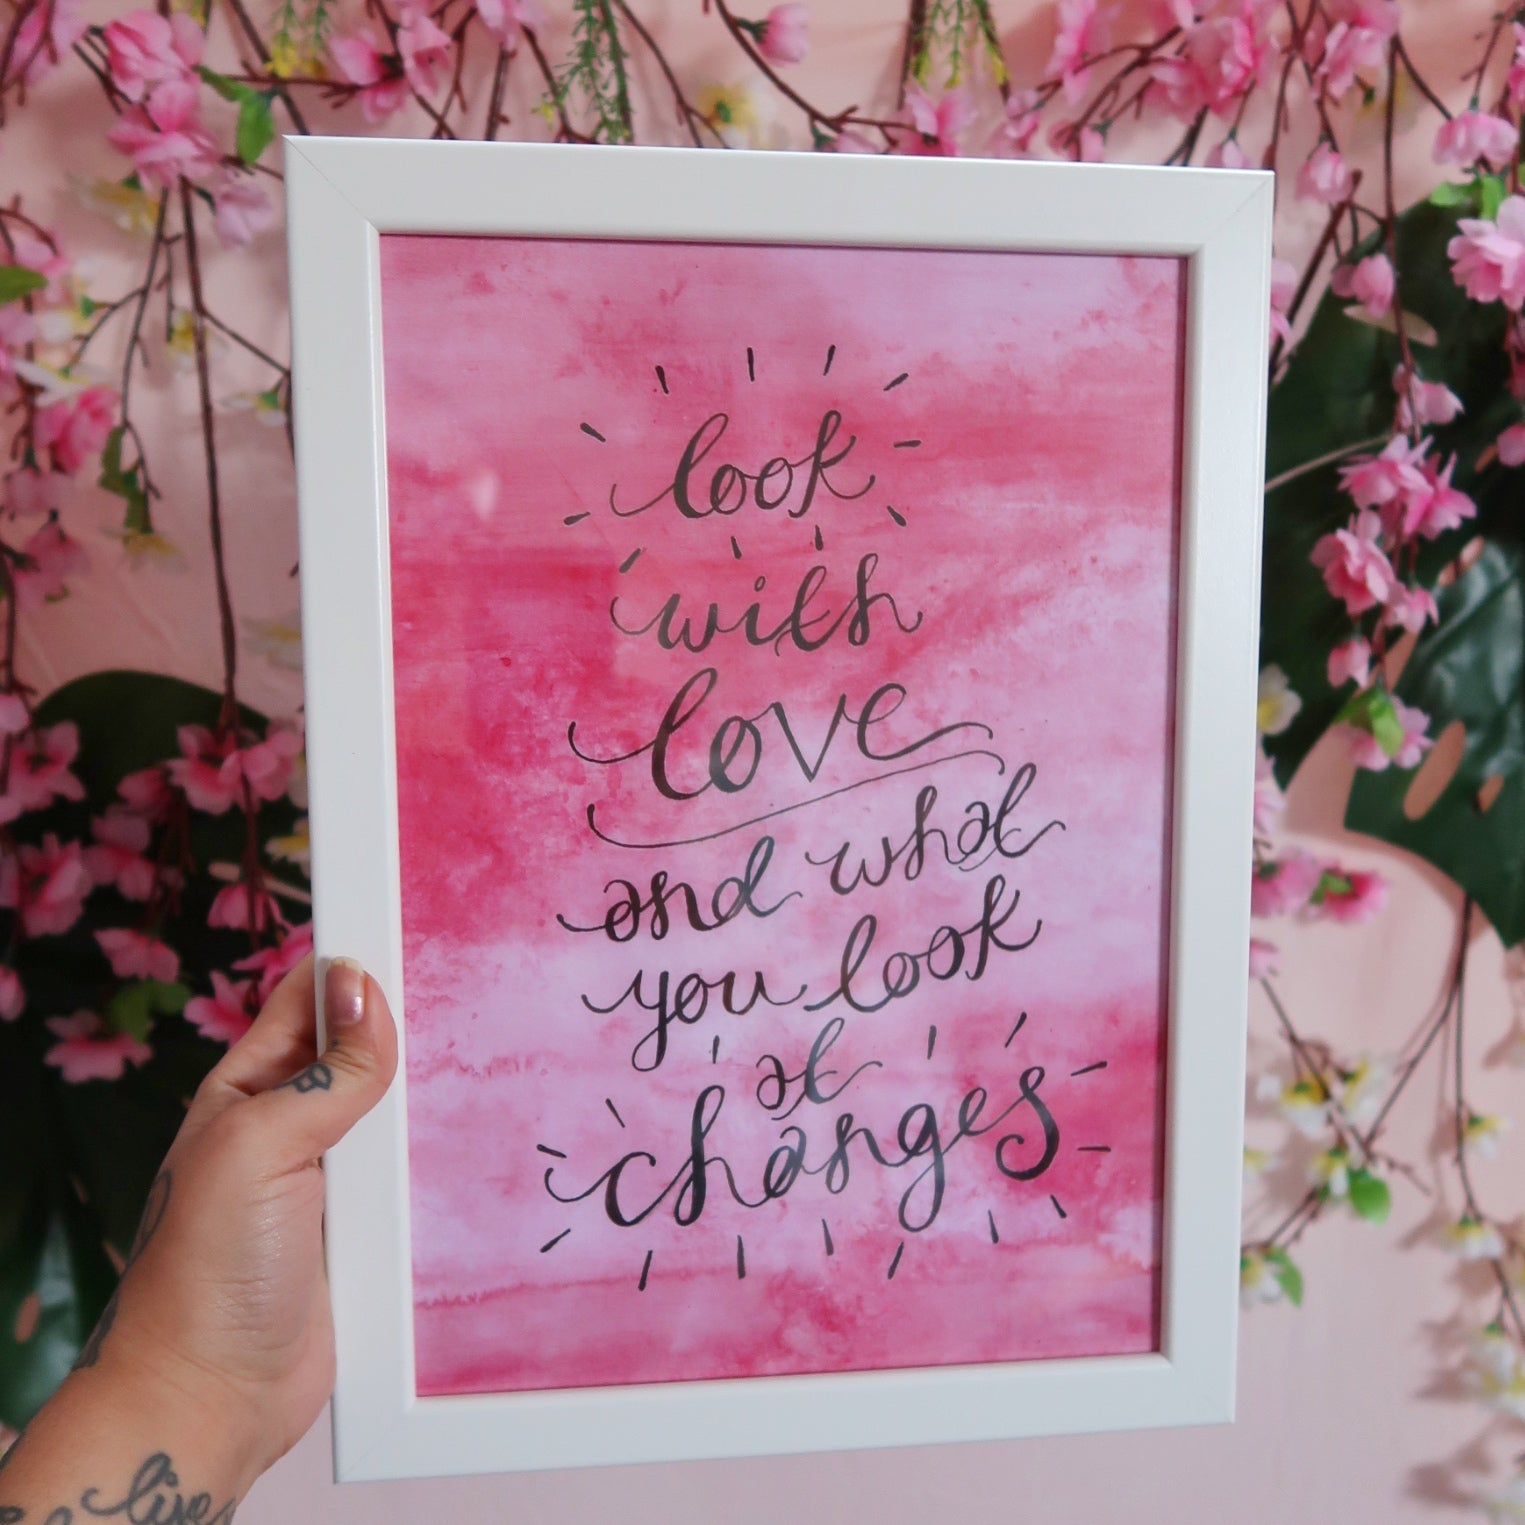 look
with
love
and what
you look
at
changes
live